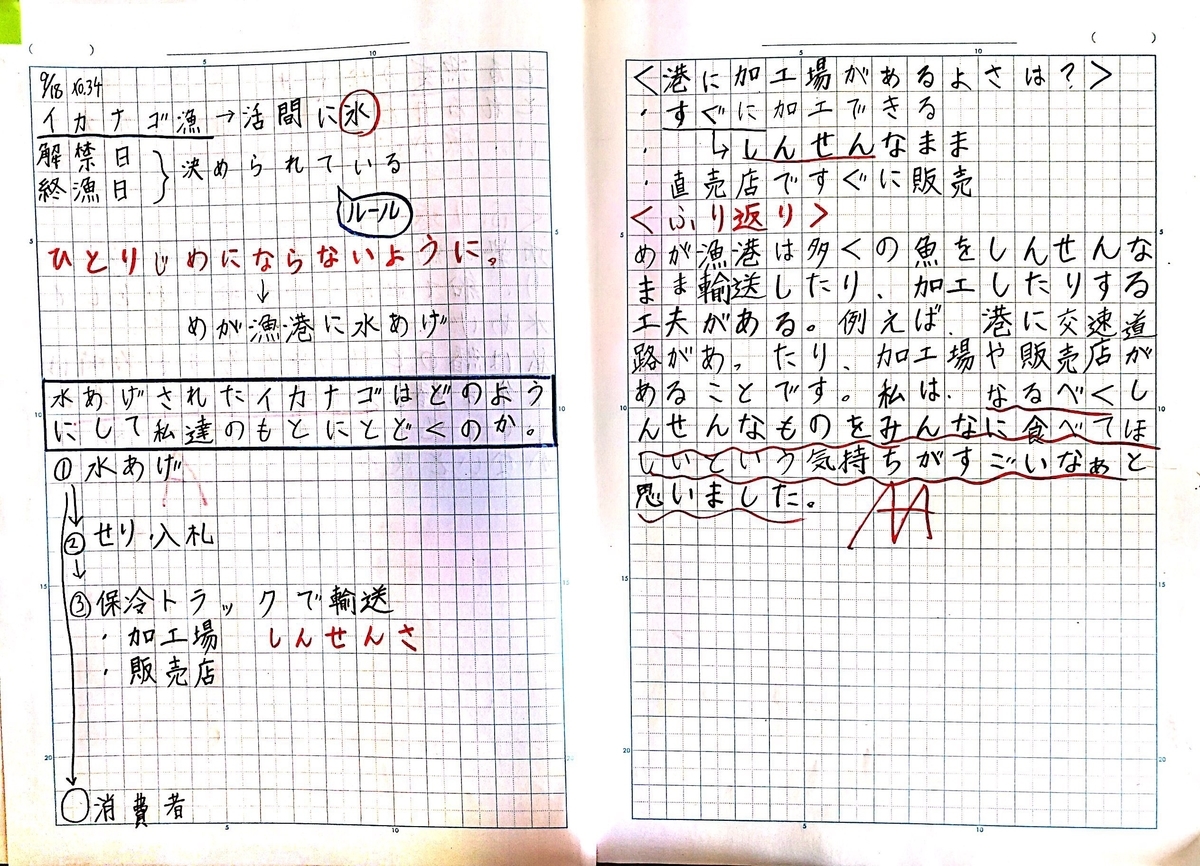 9/18 P.34
イカナゴ漁→活間に氷
解禁日
終漁日
決められている
ルール
ひとりじめにならないように。
↓
めが漁港に水あげ
水あげされたイカナゴはどのよう
にして私達のもとにとどくのか。
①水あげ
↓
②せり・入札
↓
③保冷トラックで輸送
・加工場 しんせんさ
・販売店
○消費者
<港に加工場があるよさは?>
・すぐに加工できる
・↳しんせんなまま
・直売店ですぐに販売
<ふり返り>
めが漁港は多くの魚をしんせんな
まま輸送したり、加工したりする
工夫がある。例えば、港に交速道
路があったり、加工場や販売店が
あることです。私は、なるべくし
んせんなものをみんなに食べてほ
しいという気持ちがすごいなぁと
思いました。
AA
5
10
15
20
5
10
5
10
15
20
5
10